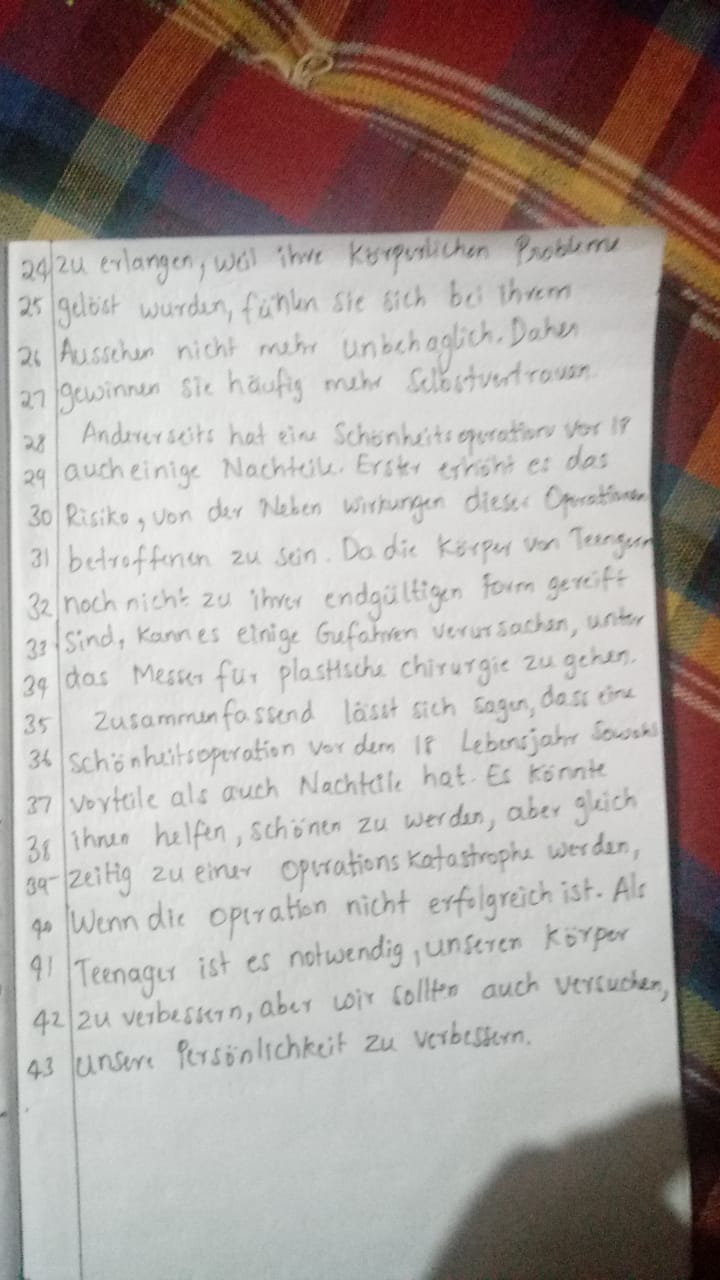 24 zu erlangen, weil ihre Körperlichen Probleme
25 gelöst wurden, fühlen sie sich bei ihrem
26 Aussehen nicht mehr unbehaglich. Daher
27 gewinnen sie häufig mehr Selbstvertrauen.
28 Andererseits hat eine Schönheitsoperation vor 18
29 auch einige Nachteile. Erster erhöht es das
30 Risiko, von der Neben wirkungen dieser Operationen
31 betroffenen zu sein. Da die Körper von Teengern
32 noch nicht zu ihrer endgültigen form gereift
33 Sind, Kann es einige Gefahren verursachen, unter
34 das Messer für plastische chirurgie zu gehen.
35 Zusammenfassend lässt sich sagen, dass eine
36 Schönheitsoperation vor dem 18 Lebensjahr sowohl
37 vorteile als auch Nachteile hat. Es könnte
38 ihnen helfen, schönen zu werden, aber gleich
39 zeitig zu einer Operations Katastrophe werden,
40 Wenn die operation nicht erfolgreich ist. Als
41 Teenager ist es notwendig, unseren Körper
42 zu verbessern, aber wir sollten auch versuchen,
43 unsere Persönlichkeit zu verbessern.